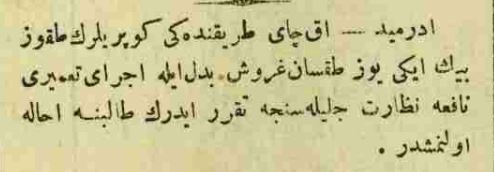 ادرمید — اق چای طریقنده‌کی کوپریلرك طقوز
بیك ایکی یوز طقسان غروش بدل ایله اجرای تعمیری
نافعه نظارت جلیله‌سنجه تقرر ایدرك طالبنه احاله
اولنمشدر .